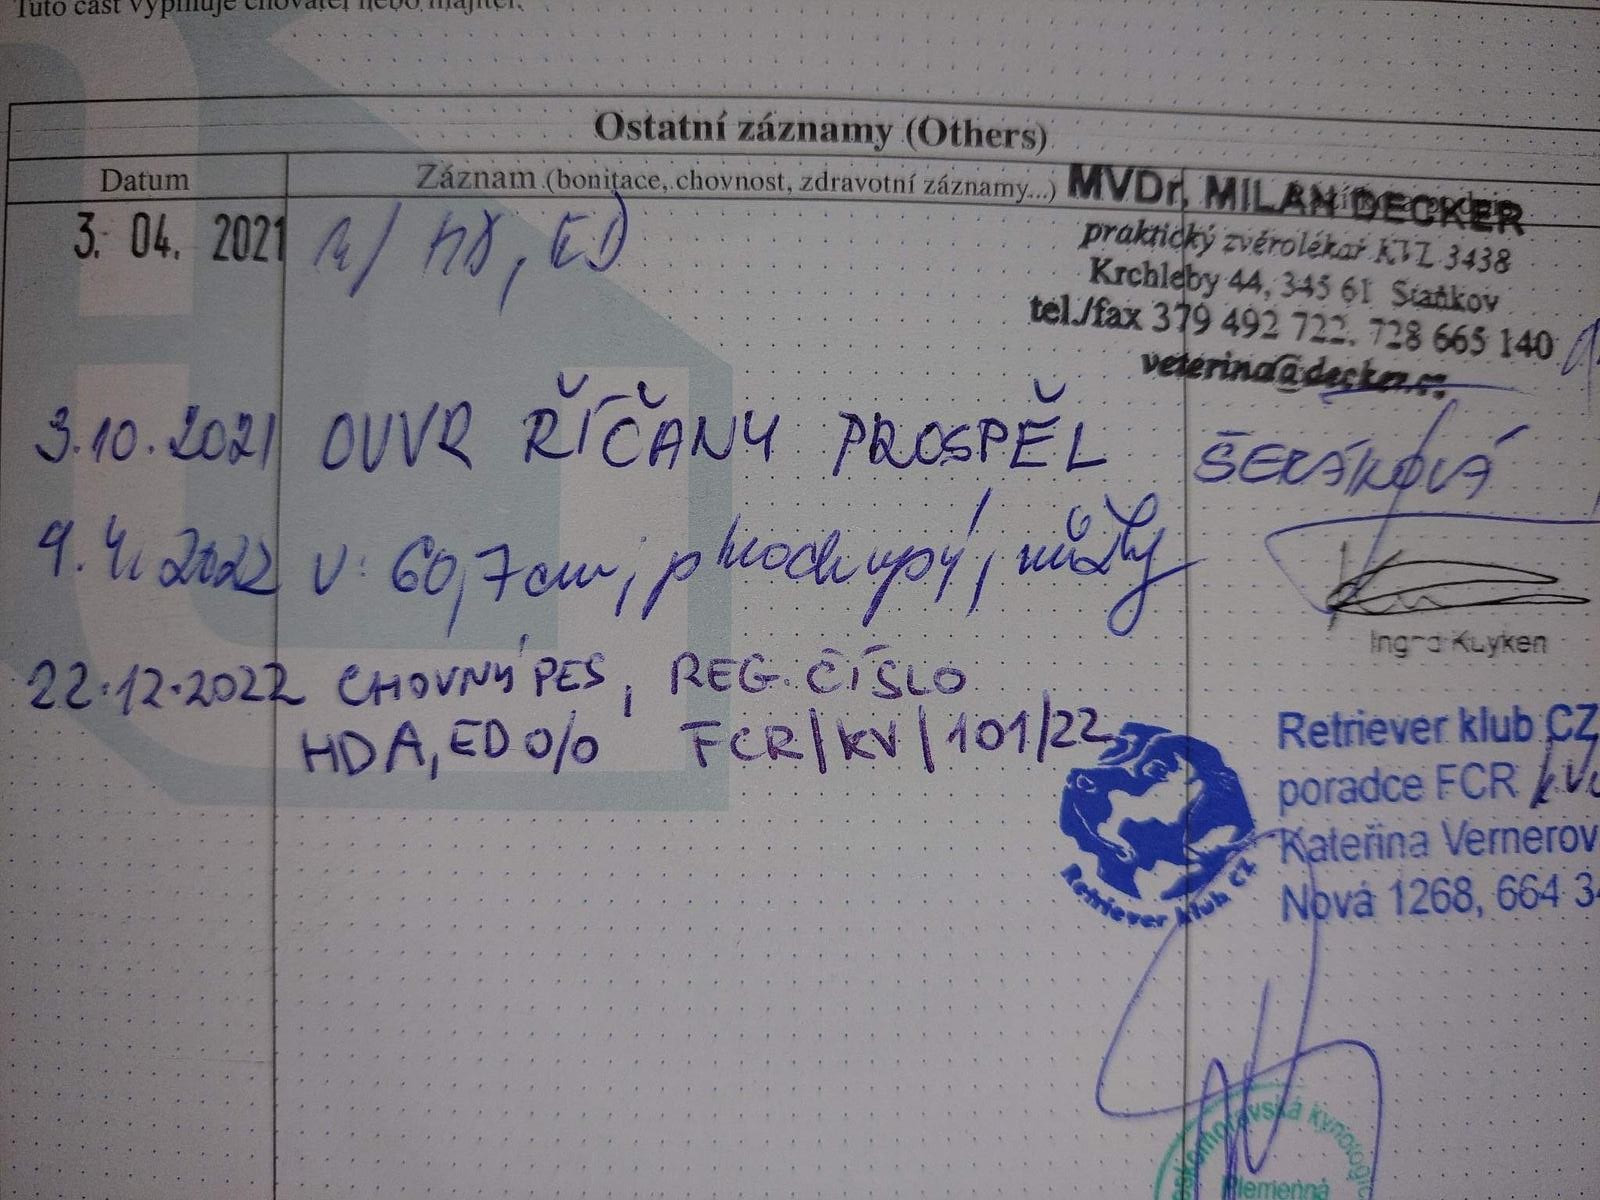 Tuto část vyplňuje chovatel nebo majitel.
Ostatní záznamy (Others)
Datum
Záznam (bonitace, chovnost, zdravotní záznamy...)
3. 04. 2021
HD, ED
MVDr. MILAN DECKER
praktický zvěrolékař KVL 3438
Krchleby 44, 345 61 Staňkov
tel./fax 379 492 722, 728 665 140
veterina@decker.cz
3.10.2021 OVVR ŘÍČANY PROSPĚL ŠERÁKOVÁ
9.4.2022 V: 60,7cm, plnochrupý, nůžky
Ingrid Kuyken
22.12.2022 CHOVNÝ PES, REG. ČÍSLO
HDA, ED 0/0 FCR/KV/101/22
Retriever klub CZ
Retriever klub CZ
poradce FCR
Kateřina Vernerov
Nová 1268, 664 34
skomoravská kynologic
Plemenná